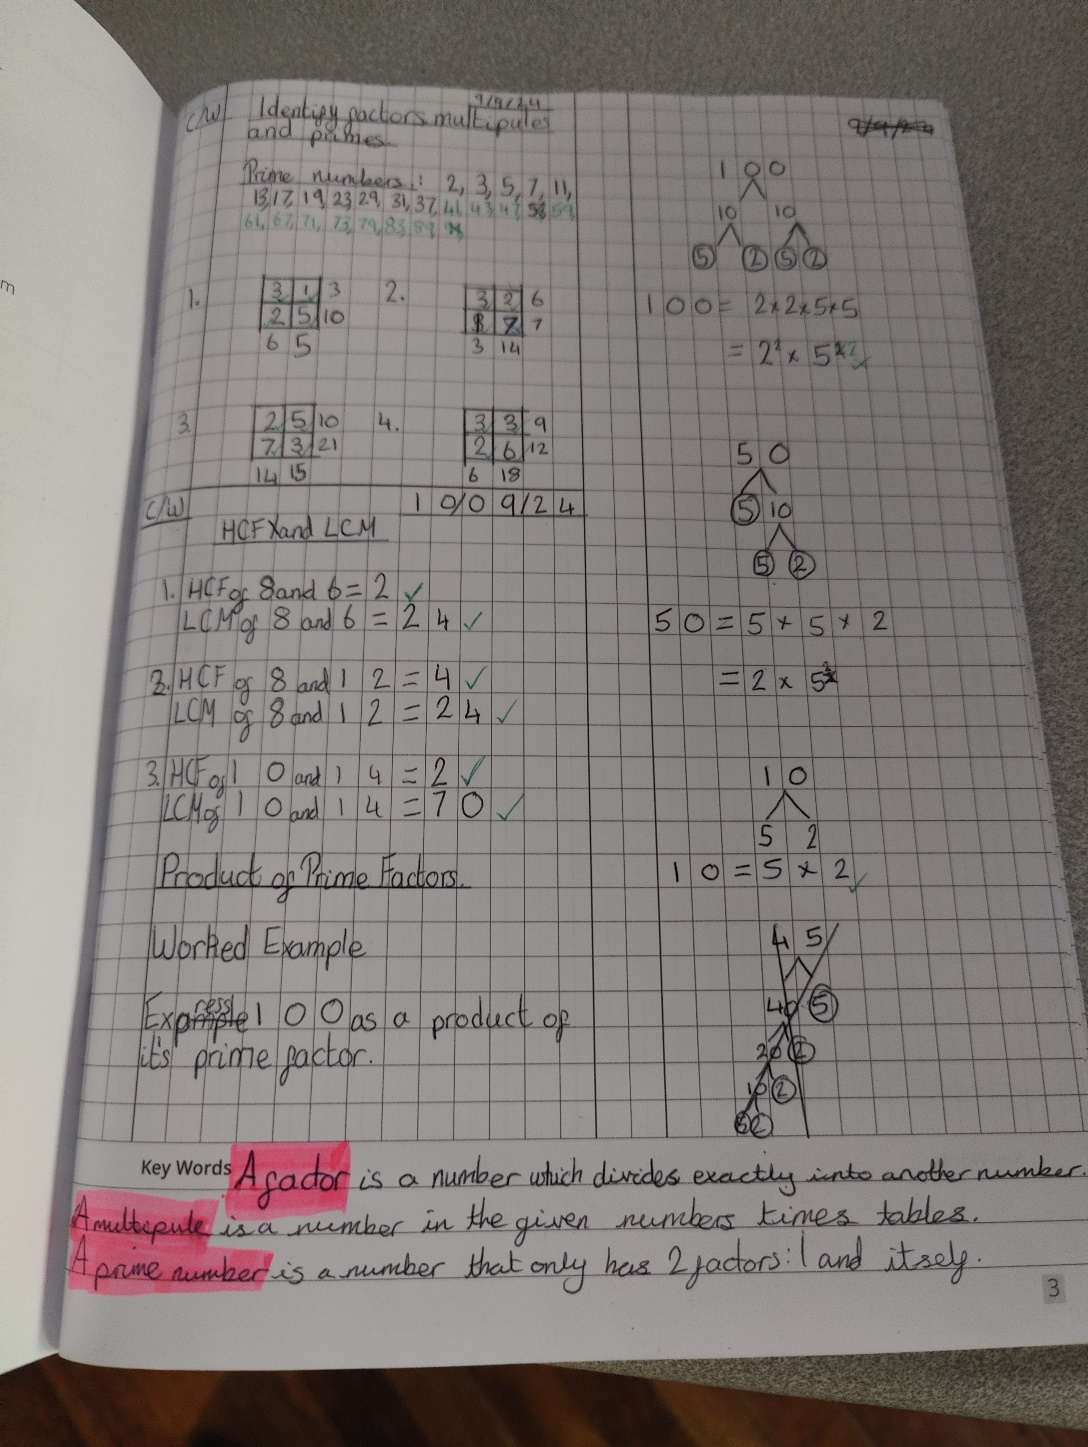 m
9/9/24
C/W Identify factors, multipules
and primes.
Prime numbers: 2, 3, 5, 7, 11,
13, 17, 19, 23, 29, 31, 37, 41, 43, 47, 53, 59,
61, 67, 71, 73, 79, 83, 89,
1. 3 1 3
2 5 10
6 5
2. 3 2 6
1 7 7
3 14
3. 2 5 10
7 3 21
14 15
4. 3 3 9
2 6 12
6 18
C/W 10/09/24
HCF and LCM
1. HCF of 8 and 6 = 2
LCM of 8 and 6 = 24
2. HCF of 8 and 12 = 4
LCM of 8 and 12 = 24
3. HCF of 10 and 14 = 2
LCM of 10 and 14 = 70
Product of Prime Factors.
Worked Example
Express 100 as a product of
it's prime factor.
9/9/24
100
10 10
5 2 5 2
100 = 2×2×5×5
= 2² × 5²
50
5 10
5 2
50 = 5 × 5 × 2
= 2 × 5²
10
5 2
10 = 5 × 2
45
40 5
20 2
10 2
5 2
Key Words A factor is a number which divides exactly into another number.
A multipule is a number in the given numbers times tables.
A prime number is a number that only has 2 factors: 1 and itself.
3